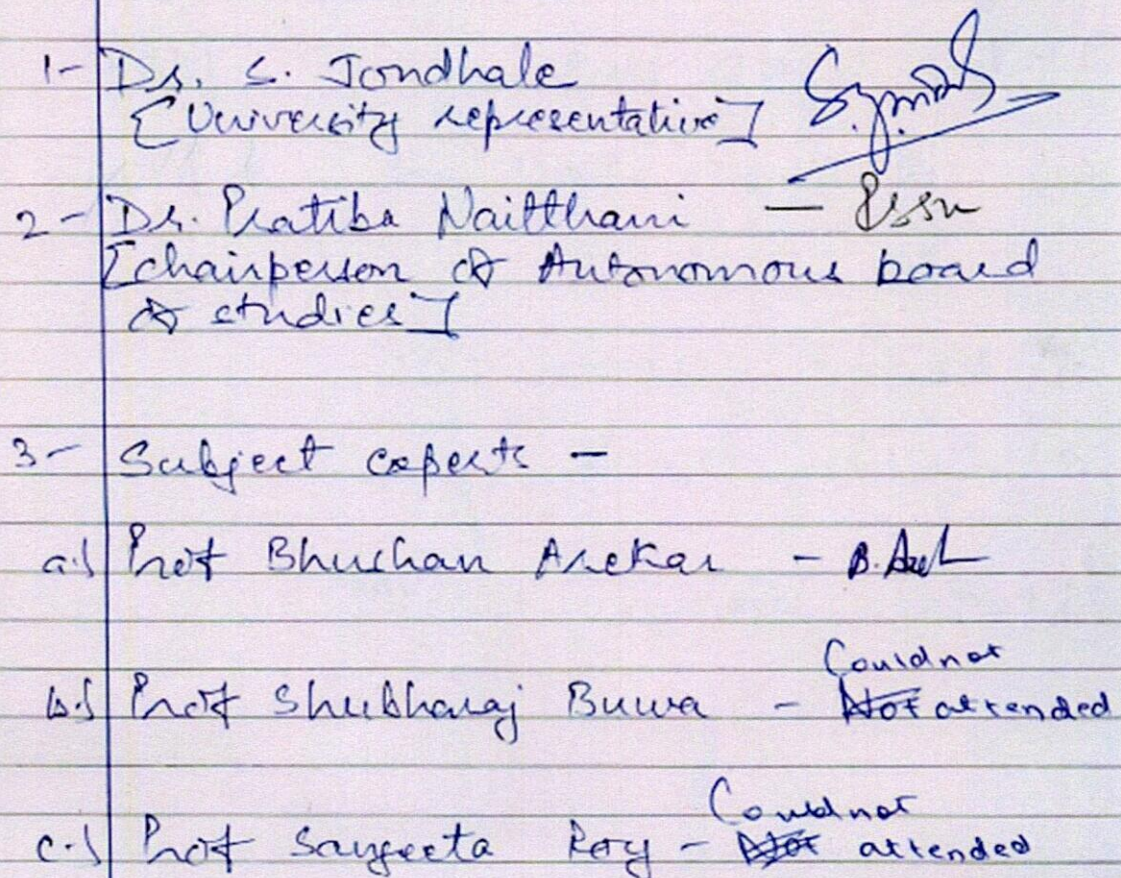 1- Dr. S. Jondhale
[University representative]
2- Dr. Pratiba Naitthani —
[chairperson of Autonomous board
of studies]
3- Subject experts -
a.) Prof Bhushan Arekar - B. Arek
Could not
b.) Prof Shubharaj Buwa - Not attended
Could not
c.) Prof Sangeeta Roy - Not attended